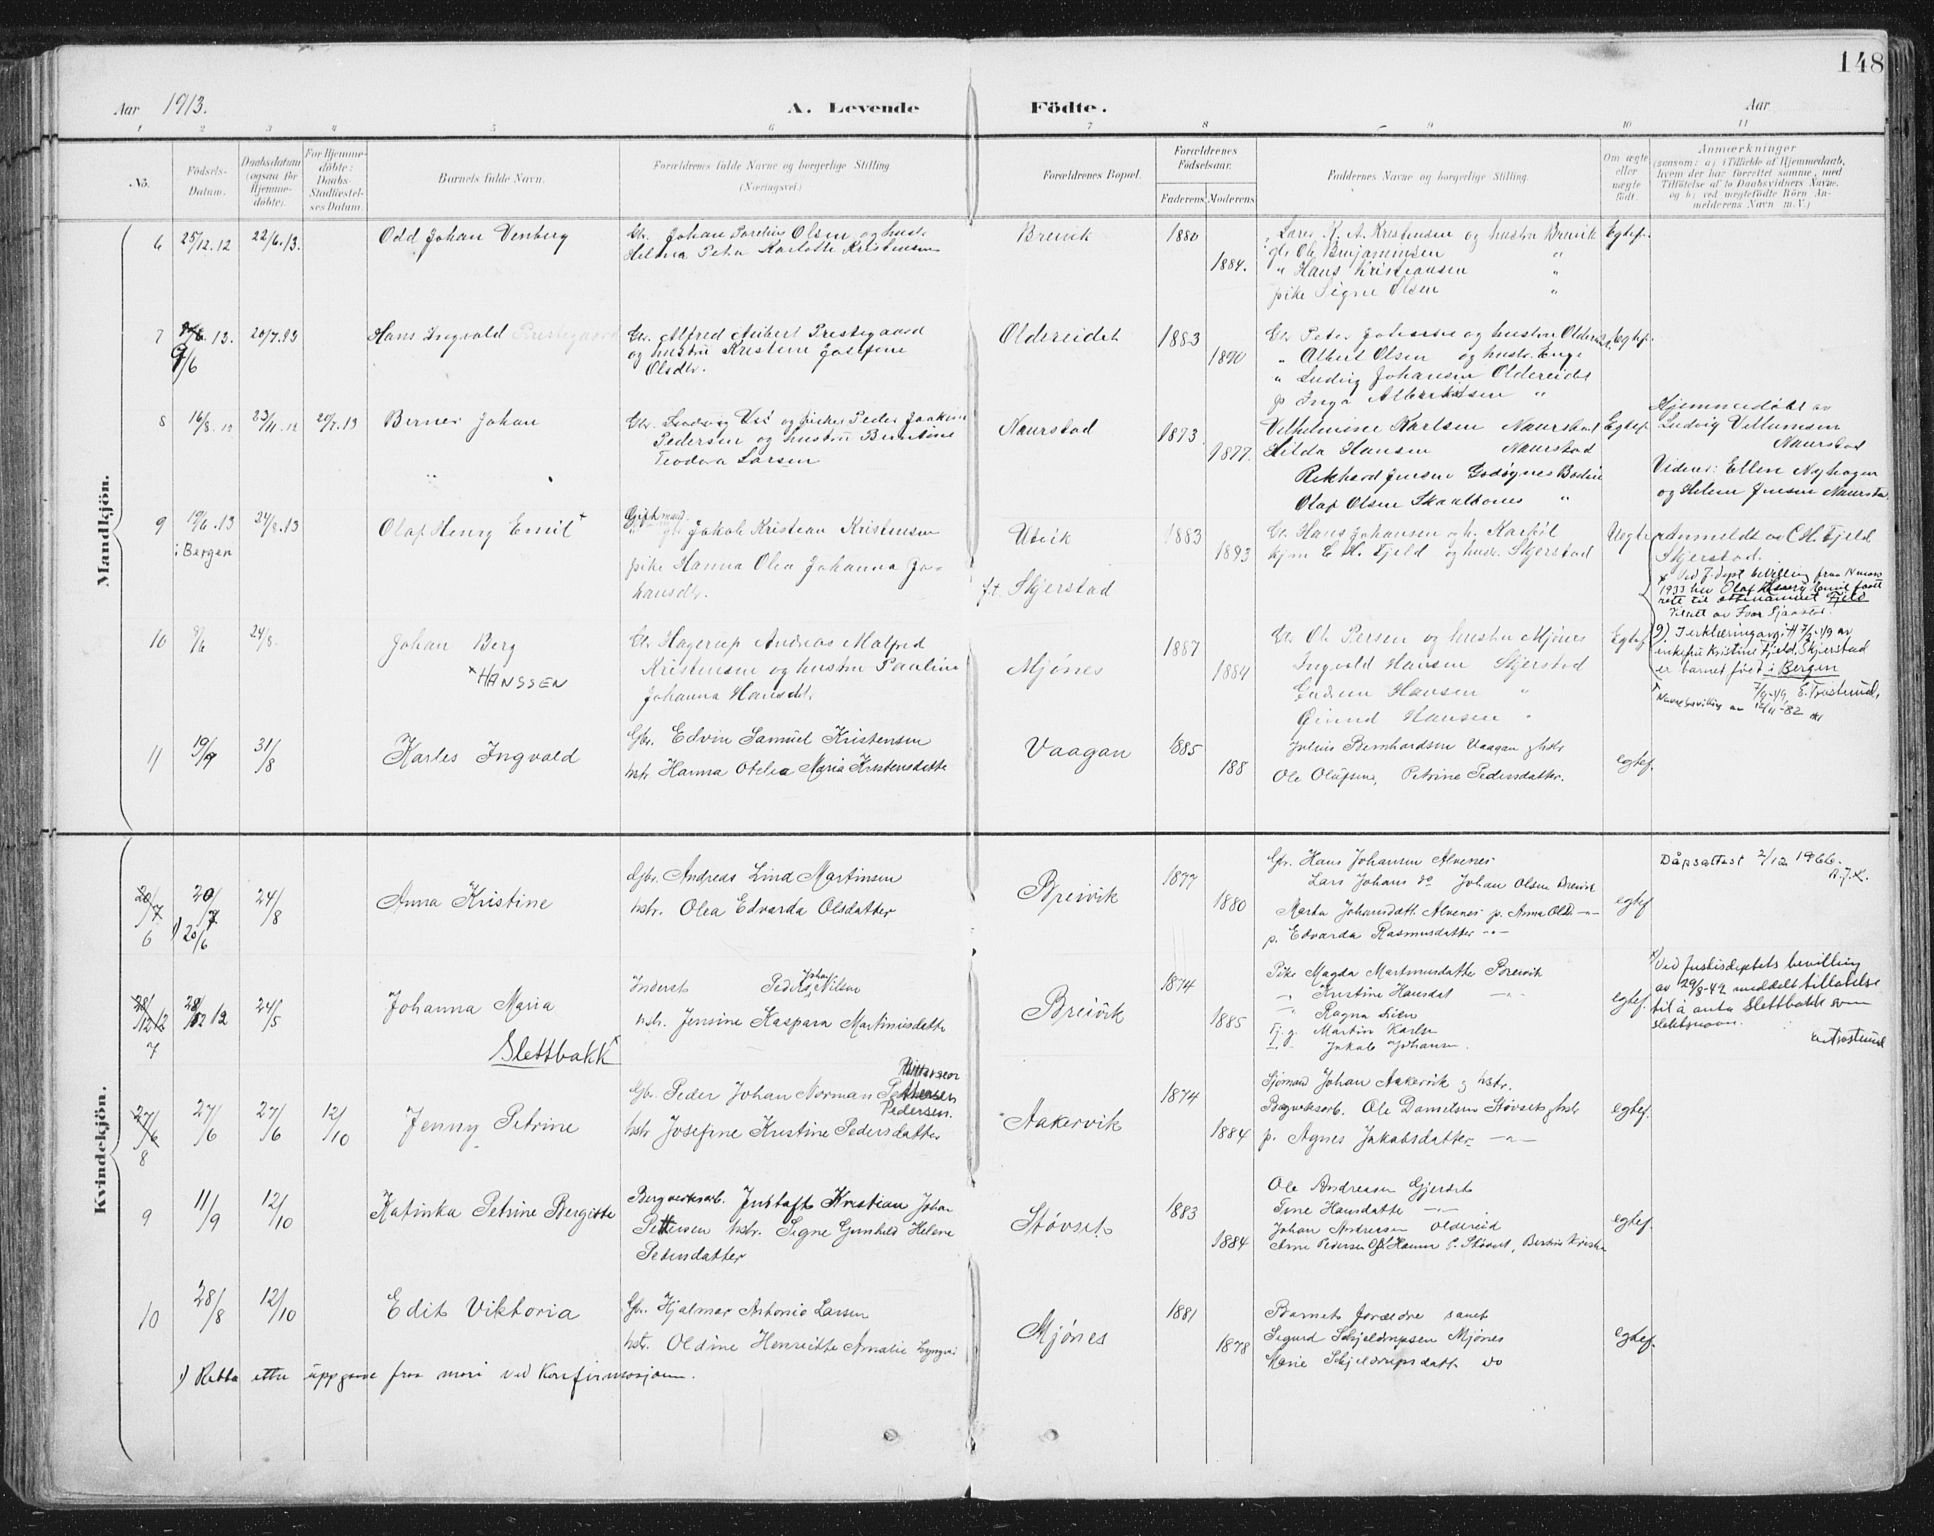 148
Aar 1913. A. Levende Födte. Aar
1 2 3 4 5 6 7 8 9 10 11
No. Födsels-Datum. Daabsdatum (ogsaa for Hjemme-döbte). For Hjemme-döbte: Daabs-Stadfæstel-ses Datum. Barnets fulde Navn. Forældrenes fulde Navne og borgerlige Stilling (Næringsvei) Forældrenes Bopæl. Forældrenes Födselsaar. Faderens Moderens Faddernes Navne og borgerlige Stilling. Om ægte eller uægte födt. Anmærkninger (saasom: a) i Tilfælde af Hjemmedaab, hvem der har forrettet samme, med Tilföielse af to Daabsvidners Navne, og b) ved uegtefödte Börn An-melderens Navn m. V.)
Mandkjön.
6 25/12.12 22/6.13. Odd Johan Venberg
Gbr. Johan Sordin Olsen og hustr
Helmia Petra Karlotte Kristensen
Breivik 1880 1884.
Lars K. A. Kristensen og hustru Breivik
gb. Ole Benjaminsen "
" Hans Kristiansen "
pike Signe Olsen "
Egtef.
7 13. 9/6 20/7.93 Hans Ingvald Prestegaard
Gbr. Alfred Aubert Prestegaard
og hustru Kristine Josefine
Olsdtr.
Oldereidet 1883 1890
Gbr Peter Johansen og hustru Oldereid
" Albert Olsen og hustr. Enge
" Ludvig Johansen Oldereidet
p Inga Albriktsen "
Egtef.
8 16/8.12 23/11.12 20/7.13 Berner Johan
Gbr. og fisker Peder Joakim
Pedersen og hustru Berntine
Teodora Larsen
Naurstad 1873. 1877.
Vilhelmine Karlsen Naurstad
Hilda Hansen Naurstad
Rikhard Jensen Godøynes Bodin
Olaf Olsen Skaalbones "
Egtef.
Hjemmedøbt av
Ludvig Villumsen
Naurstad
Vidner: Ellen Nyhagen
og Helene Jensen Naurstad
9 19/6.13 i Bergen 24/8.13 Olaf Henry Emil +
Gift mand
gbr Jakob Kristian Kristensen
pike Hanna Olea Johanna Jo-
hansdtr.
Utvik
f.t. Skjerstad 1883 1893
Gbr Hans Johansen og h. Karbøl
kjm E. H. Fjeld og hustr. Skjerstad
Uegte
Anmeldt av C.H. Fjeld
Skjerstad.
x Ved J.dept bevilling fraa 14 mars
1933 hev Olaf Henry Emil faatt
rett til ættenamnet Fjeld
10 9/6 24/8. Johan Berg
x HANSSEN
Gbr Hagerup Andreas Malfred
Kristensen og hustru Pauline
Johanna Hansdtr.
Mjönes 1887 1889
Gbr. Ole Persen og hustru Mjönes
Ingvald Hansen Skjerstad
Gudrun Hansen "
Øivind Hansen "
Egtef.
9). I erklæring avgitt 7/9-49 av
enkefru Kristine Fjeld, Skjerstad
er barnet født i Bergen
7/9-49, E. Trostrud,
x Navnebevilling av 12/11-82
11 19/9 31/8 Karles Ingvald
Gbr. Edvin Samuel Kristensen
hstr Hanna Otelea Maria Kristensdatte
Vaagan 1885 188
Julius Bernhardsen Vaagan og hstr
Ole Olufsen, Petrine Pedersdatter.
egtef.
Kvindekjön.
20/7 6 20/7 1) 20/6 24/8 Anna Kristine
Gbr. Andreas Lind Martinsen
hstr. Olea Edvarda Olsdatter
Breivik 1877 1880
Gbr. Hans Johansen Alvenes
Lars Johans do Johan Olsen Breivik
Marta Johansdatt. Alvenes p. Anna Olsd -"-
p. Edvarda Rasmusdatter -"-
egtef
Dåpsattest 2/12 1966.
28/12 12 7 28/12 12 24/5 Johanna Maria
Slettbakk x
Inderst Peder Johan Nilsen
hstr. Jensine Kaspara Martinusdatte
Breivik 1874 1885
Pike Magda Martinusdatte Breivik
-"- Kristine Hansdat -"-
-"- Ragna
Tj. g. Martin Karlsen
-"- Jakob Johansen.
egtef.
x Ved Justisdeptets bevilling
av 29/8-49 meddelt tillatelse
til å anta Slettbakk som
slektsnavn.
E. Trostrud
27/6 8 27/6 27/6 12/10 Jenny Petrine
Gbr. Peder Johan Norman Pedersen.
hstr Josefine Kristine Pedersdatter
Aakervik 1874 1884
Sjömand Johan Aakervik og hstr.
Bergverksarb. Ole Danielsen Støvset og hstr
p. Agnes Jakobsdatter -"-
egtef.
9 11/9 12/10 Katinka Petrine Bergitte
Bergverksarb. Justaft Kristian Johan
Pettersen hstr. Signe Gunhild Helene
Pedersdatter
Støvset 1883 1884
Ole Andreasen Gjerdet
Tine Hansdatte -"-
Johan Andreasen Oldereid
Arne Pedersen Hanna P. Støvset,
egtef.
10 28/8 12/10 Edit Viktoria
Gbr. Hjalmar Antonio Larsen
hstr. Oldine Henriette Amalie
Mjönes 1881 1878
Barnets forældre samt
Sigurd Schjeldrupsen Mjönes
Marie Schjeldrupsdatt do
egtef.
1) Retta etter uppgave fraa mori ved konfirmasjonen.